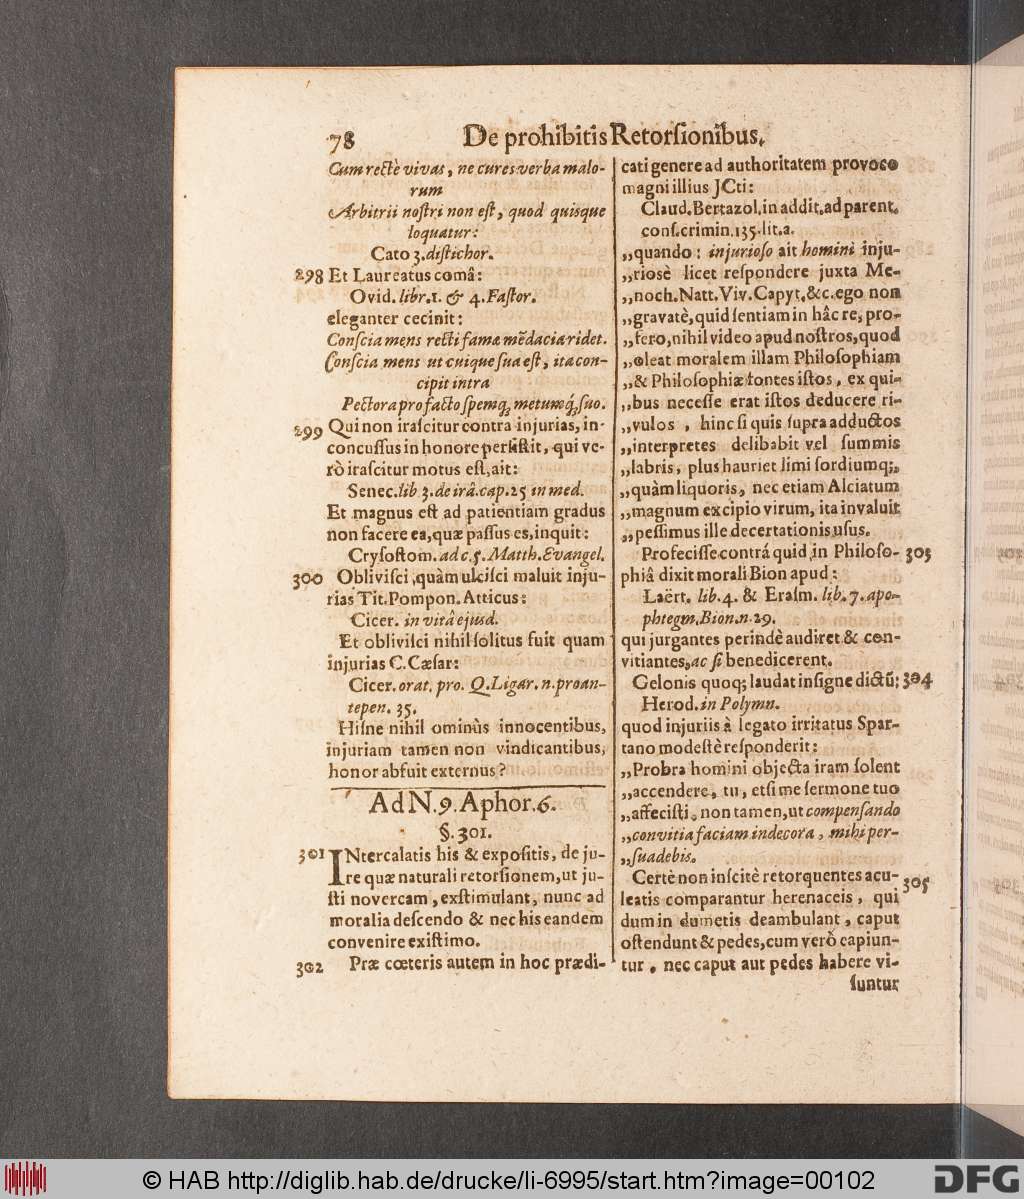 78 De prohibitis Retorſionibus.
Cum rectè vivas, ne cures verba malo-
rum
Arbitrii noſtri non eſt, quod quisque
loquatur:
Cato 3. diſtichor.
298 Et Laureatus comâ:
Ovid. libr. 1. & 4. Faſtor.
eleganter cecinit:
Conſcia mens recti famæ mẽdacia ridet.
Conſcia mens ut cuique ſua eſt, ita con-
cipit intra
Pectora pro facto ſpemq; metumq́; ſuo.
299 Qui non iraſcitur contra injurias, in-
concuſſus in honore perſiſtit, qui ve-
rò iraſcitur motus eſt, ait:
Senec. lib 3. de irâ. cap. 25 in med.
Et magnus eſt ad patientiam gradus
non facere ea, quæ paſſus es, inquit:
Cryſoſtom. ad c. 5. Matth. Evangel.
300 Obliviſci, quàm ulciſci maluit inju-
rias Tit. Pompon. Atticus:
Cicer. in vitâ ejusd.
Et obliviſci nihil ſolitus fuit quam
injurias C. Cæſar:
Cicer. orat. pro. Q. Ligar. n. proan-
tepen. 35.
Hiſne nihil ominùs innocentibus,
injuriam tamen non vindicantibus,
honor abfuit externus?
Ad N. 9. Aphor. 6.
§. 301.
301 INtercalatis his & expoſitis, de ju-
re quæ naturali retorſionem, ut ju-
ſti novercam, exſtimulant, nunc ad
moralia deſcendo & nec his eandem
convenire exiſtimo.
302 Præ cœteris autem in hoc prædi-
cati genere ad authoritatem provoco
magni illius JCti:
Claud. Bertazol. in addit. ad parent.
conſ. crimin. 135. lit. a.
„quando: injurioſo ait homini inju-
„riosè licet reſpondere juxta Me-
„noch. Natt. Viv. Capyt. &c. ego non
„gravatè, quid ſentiam in hâc re, pro-
„fero, nihil video apud noſtros, quod
„oleat moralem illam Philoſophiam
„& Philoſophiæ fontes iſtos, ex qui-
„bus neceſſe erat iſtos deducere ri-
„vulos, hinc ſi quis ſupra adductos
„interpretes delibabit vel ſummis
„labris, plus hauriet limi ſordiumq;,
„quàm liquoris, nec etiam Alciatum
„magnum excipio virum, ita invaluit
„peſſimus ille decertationis uſus.
Profeciſſe contrá quid in Philoſo- 303
phiâ dixit morali Bion apud:
Laërt. lib. 4. & Eraſm. lib. 7. apo-
phtegm. Bion. n. 29.
qui jurgantes perindè audiret & con-
vitiantes, ac ſi benedicerent.
Gelonis quoq; laudat inſigne dictũ: 304
Herod. in Polymn.
quod injuriis à legato irritatus Spar-
tano modeſtè reſponderit:
„Probra homini objecta iram ſolent
„accendere, tu, etſi me ſermone tuo
„affeciſti, non tamen, ut compenſando
„convitia faciam indecora, mihi per-
„ſuadebis.
Certè non inſcitè retorquentes acu- 305
leatis comparantur herenaceis, qui
dum in dumetis deambulant, caput
oſtendunt & pedes, cum verò capiun-
tur, nec caput aut pedes habere vi-
ſuntur
© HAB http://diglib.hab.de/drucke/li-6995/start.htm?image=00102
DFG